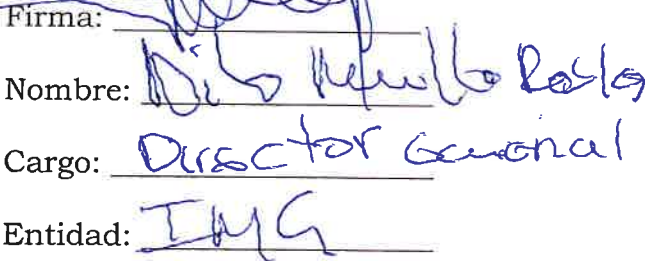 Firma:
Nombre:
Cargo: Director General
Entidad: IMG